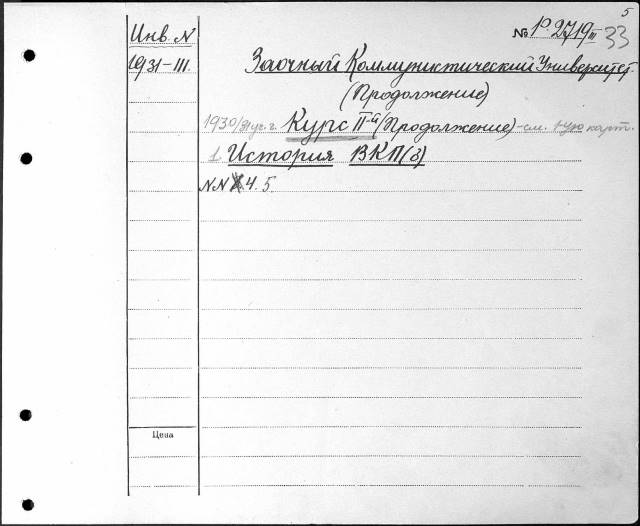 5
Инв. N
№ Р 2719 III 33
1931-III.
Заочный Коммунистический Университет
(Продолжение)
1930/31 уч. г. Курс II-й (Продолжение) - см. 1-ую карт.
1 История ВКП(б)
NN 4. 5.
Цена